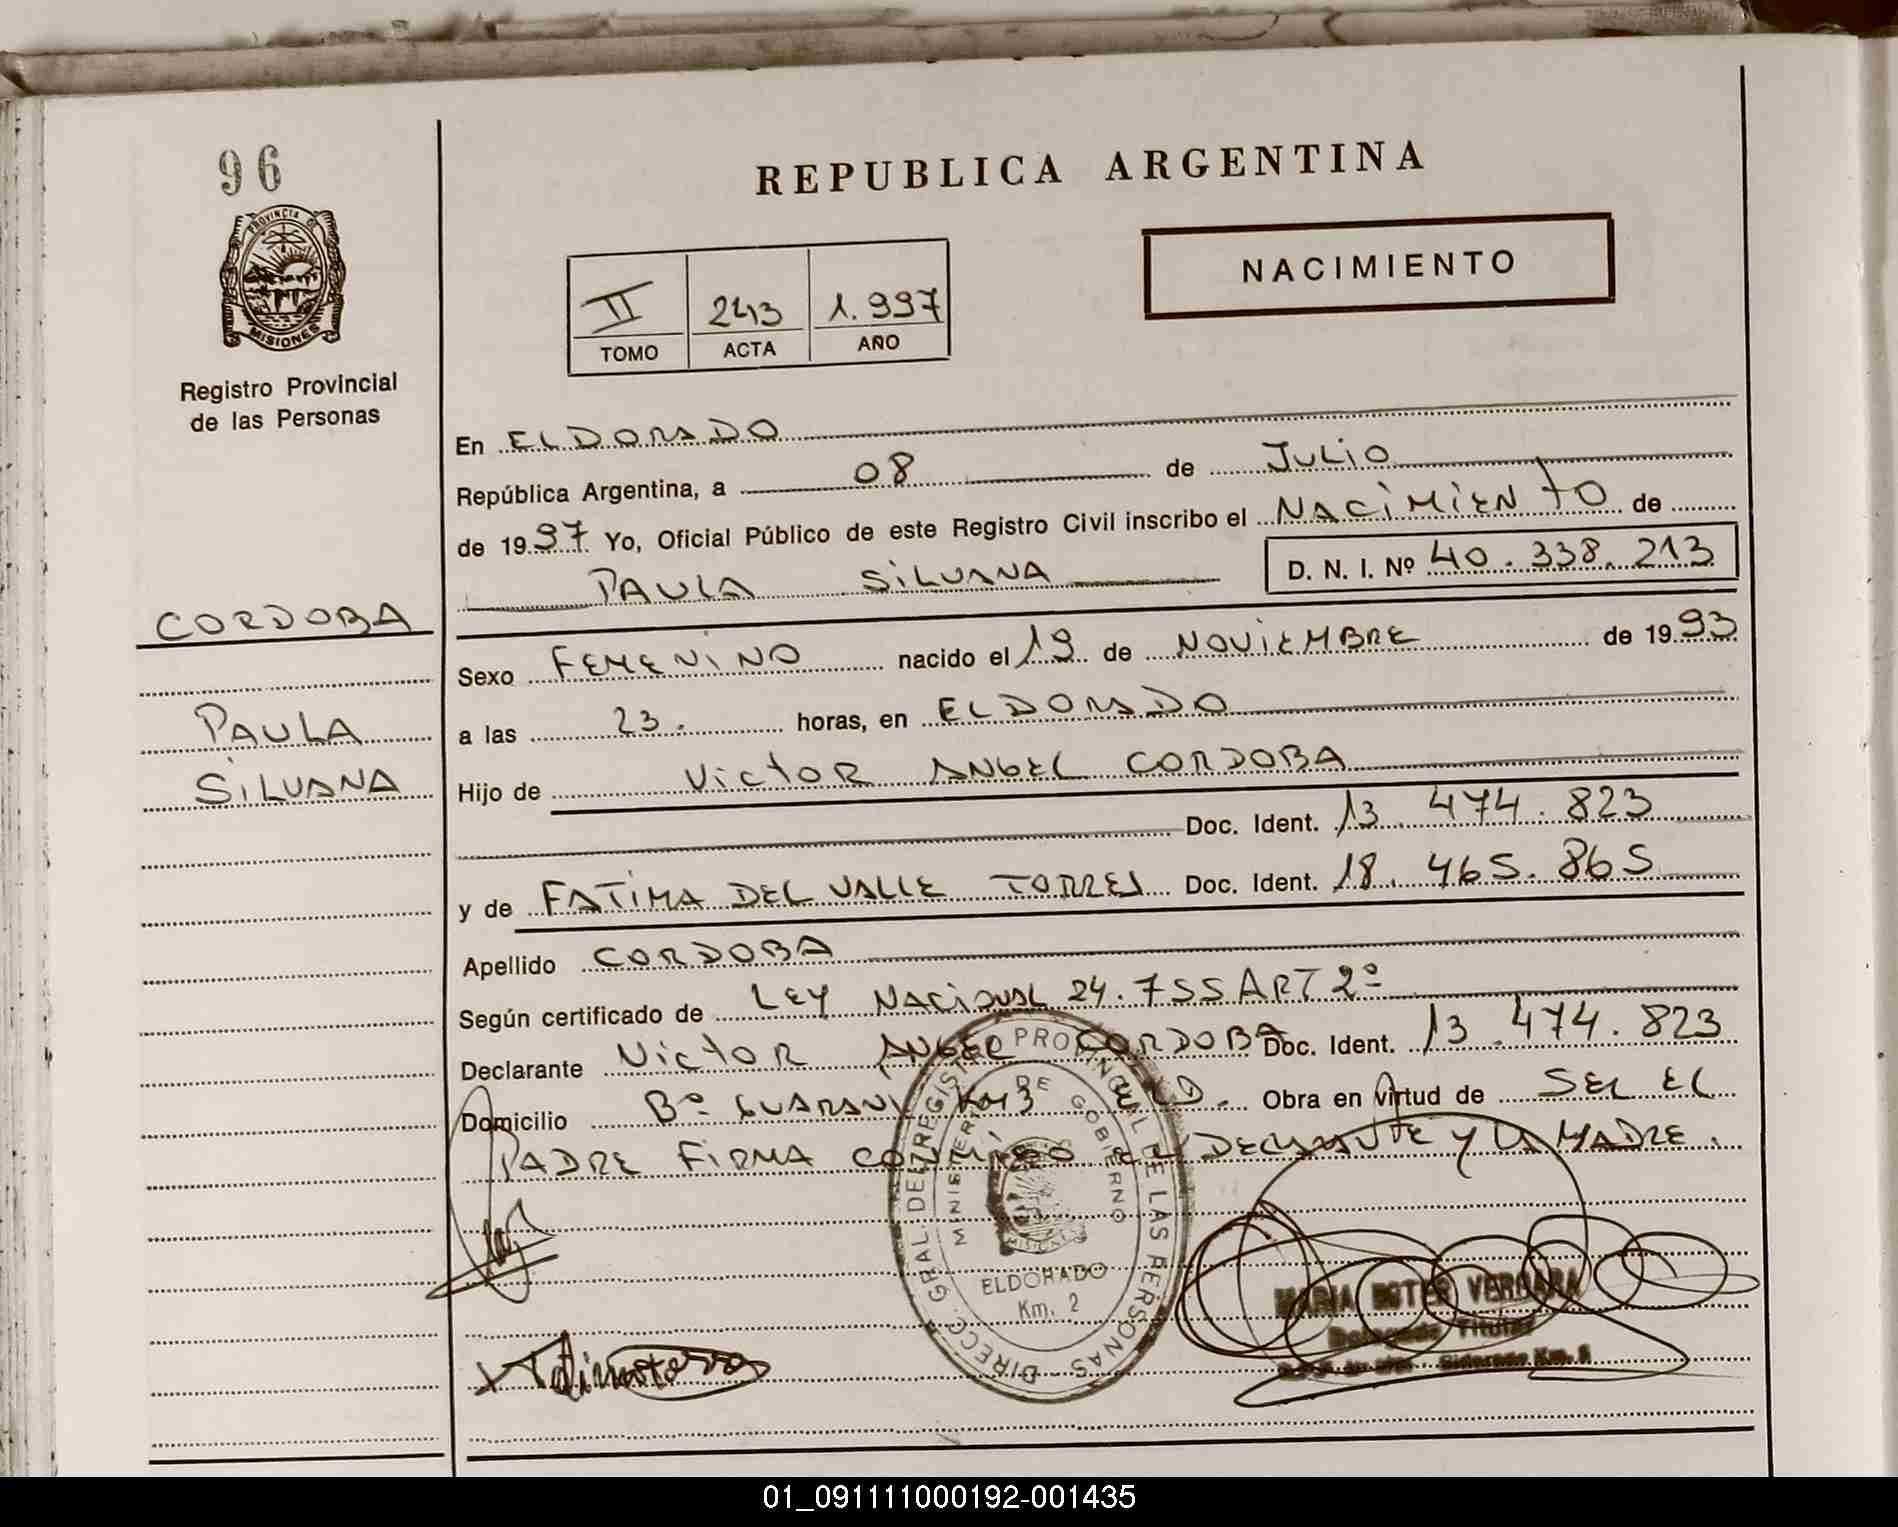 96
PROVINCIA DE
MISIONES
Registro Provincial
de las Personas
CORDOBA
PAULA
SILVANA
REPUBLICA ARGENTINA
NACIMIENTO
II 243 1.997
TOMO ACTA AÑO
En ELDORADO
República Argentina, a 08 de JULIO
de 1997 Yo, Oficial Público de este Registro Civil inscribo el NACIMIENTO de
PAULA SILVANA D. N. I. Nº 40.338.213
Sexo FEMENINO nacido el 19 de NOVIEMBRE de 1993
a las 23. horas, en ELDORADO
Hijo de VICTOR ANGEL CORDOBA
Doc. Ident. 13.474.823
y de FATIMA DEL VALLE TORRES Doc. Ident. 18.465.865
Apellido CORDOBA
Según certificado de LEY NACIONAL 24.755 ART 2º
Declarante VICTOR ANGEL CORDOBA Doc. Ident. 13.474.823
Domicilio Bº GUARANI Km 3 ELD. Obra en virtud de SER EL
PADRE FIRMA CONMIGO EL DECLARANTE Y LA MADRE.
DIRECC. GRAL. DEL REGISTRO PROVINCIAL DE LAS PERSONAS
MINISTERIO DE GOBIERNO
MISIONES
ELDORADO
Km. 2
MARIA ESTER VERGARA
Delegada Titular
Eldorado Km. 2
01_091111000192-001435